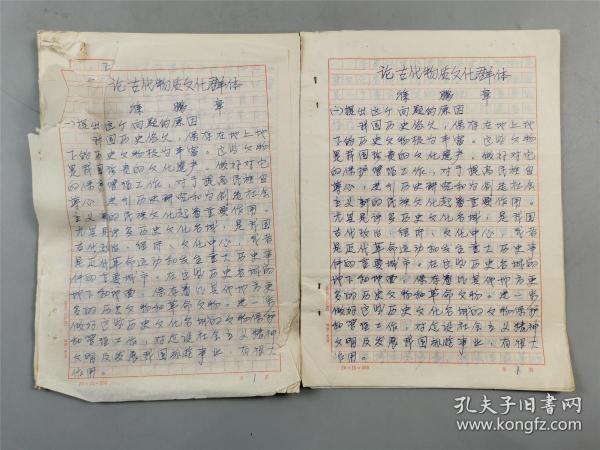 论古代物质文化群体
徐鹏章
㈠提出这个问题的原因
我国历史悠久，保存在地上地
下的历史文物极为丰富。这些文物
是我国珍贵的文化遗产，做好对它
的保护管理工作，对于提高民族自
尊心，进行历史研究和为创造社会
主义新的民族文化起着重要作用。
尤其是许多历史文化名城，是我国
古代政治、经济、文化中心，或者
是近代革命运动和发生重大历史事
件的重要城市。在这些历史名城的
地下和地面，保存着比其他地方更
多的历史文物和革命文物。进一步
做好这些历史文化名城的文物保护
和管理工作，对建设社会主义精神
文明及发展我国旅游事业，有很大
作用。
20×15=300
第 1 页
论古代物质文化群体
徐鹏章
㈠提出这个问题的原因
我国历史悠久，保存在地上地
下的历史文物极为丰富。这些文物
是我国珍贵的文化遗产，做好对它
的保护管理工作，对于提高民族自
尊心，进行历史研究和为创造社会
主义新的民族文化起着重要作用。
尤其是许多历史文化名城，是我国
古代政治、经济、文化中心，或者
是近代革命运动和发生重大历史事
件的重要城市。在这些历史名城的
地下和地面，保存着比其他地方更
多的历史文物和革命文物。进一步
做好这些历史文化名城的文物保护
和管理工作，对建设社会主义精神
文明及发展我国旅游事业，有很大
作用。
20×15=300
第 1 页
孔夫子旧书网